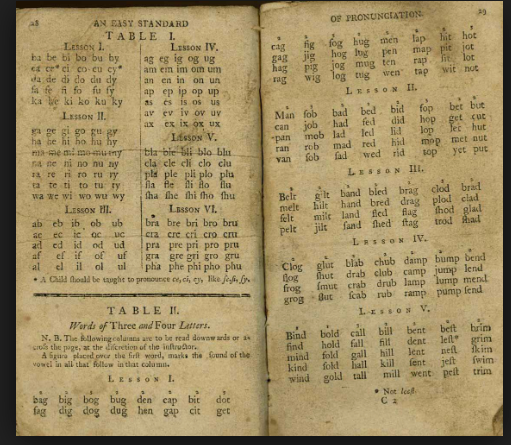 28 AN EASY STANDARD
TABLE I.
LESSON I.
ba be bi bo bu by
ca ce* ci co cu cy*
da de di do du dy
fa fe fi fo fu fy
ka ke ki ko ku ky
LESSON II.
ga ge gi go gu gy
ha he hi ho hu hy
ma me mi mo mu my
na ne ni no nu ny
ra re ri ro ru ry
ta te ti to tu ty
wa we wi wo wu wy
LESSON III.
ab eb ib ob ub
ac ec ic oc uc
ad ed id od ud
af ef if of uf
al el il ol ul
LESSON IV.
ag eg ig og ug
am em im om um
an en in on un
ap ep ip op up
as es is os us
av ev iv ov uv
ax ex ix ox ux
LESSON V.
bla ble bli blo blu
cla cle cli clo clu
pla ple pli plo plu
fla fle fli flo flu
sha she shi sho shu
LESSON VI.
bra bre bri bro bru
cra cre cri cro cru
pra pre pri pro pru
gra gre gri gro gru
pha phe phi pho phu
* A Child should be taught to pronounce ce, ci, cy, like se, si, sy.
TABLE II.
Words of Three and Four Letters.
N. B. The following columns are to be read downwards or a-
cross the page, at the discretion of the instructor.
A figure placed over the first word, marks the sound of the
vowel in all that follow in that column.
LESSON I.
bag big bog bug den cap bit dot
fag dig dog dug hen gap cit get
OF PRONUNCIATION. 29
cag fig fog hug men lap hit hot
gag jig hog lug pen map pit jot
hag pig jog mug ten rap lot
rag wig log tug wen tap wit not
LESSON II.
Man fob bad bed bid fop bet but
can job had fed did hop get cut
pan mob lad led lid lop let hut
ran rob mad red hid mop met nut
van sob sad wed rid sop yet put
LESSON III.
Belt gilt band bled brag clod brad
melt hilt hand bred drag plod clad
felt milt land fled flag shod glad
pelt jilt sand shed stag trod shad
LESSON IV.
Clog glut blab chub damp bump bend
flog shut drab club camp jump lend
frog smut crab drub lamp lump mend
grog slut scab rub ramp pump send
LESSON V.
Bind bold call bill bent best brim
find hold fall fill dent lest* grim
mind fold gall hill lent nest skim
kind sold hall kill sent jest swim
wind gold tall mill went pest trim
* Not least.
C 2